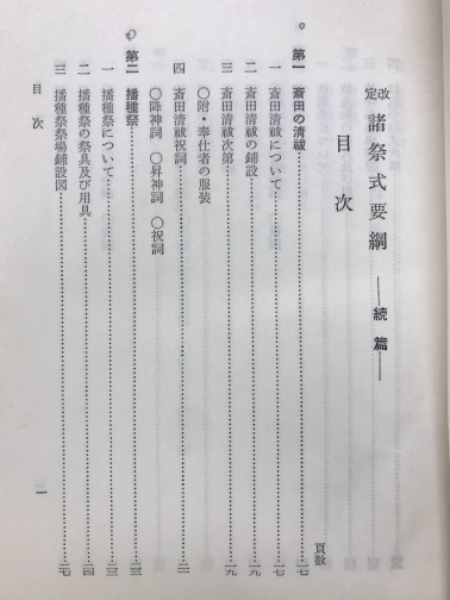 改定 諸祭式要綱 ――続篇――
目次
頁数
第一 斎田の清祓……一七
一 斎田清祓について……一七
二 斎田清祓の鋪設……一九
三 斎田清祓次第……一九
○附・奉仕者の服装
四 斎田清祓祝詞……二一
○降神詞 ○昇神詞 ○祝詞
第二 播種祭……二三
一 播種祭について……二三
二 播種祭の祭具及び用具……二四
三 播種祭祭場鋪設図……二七
目次
一